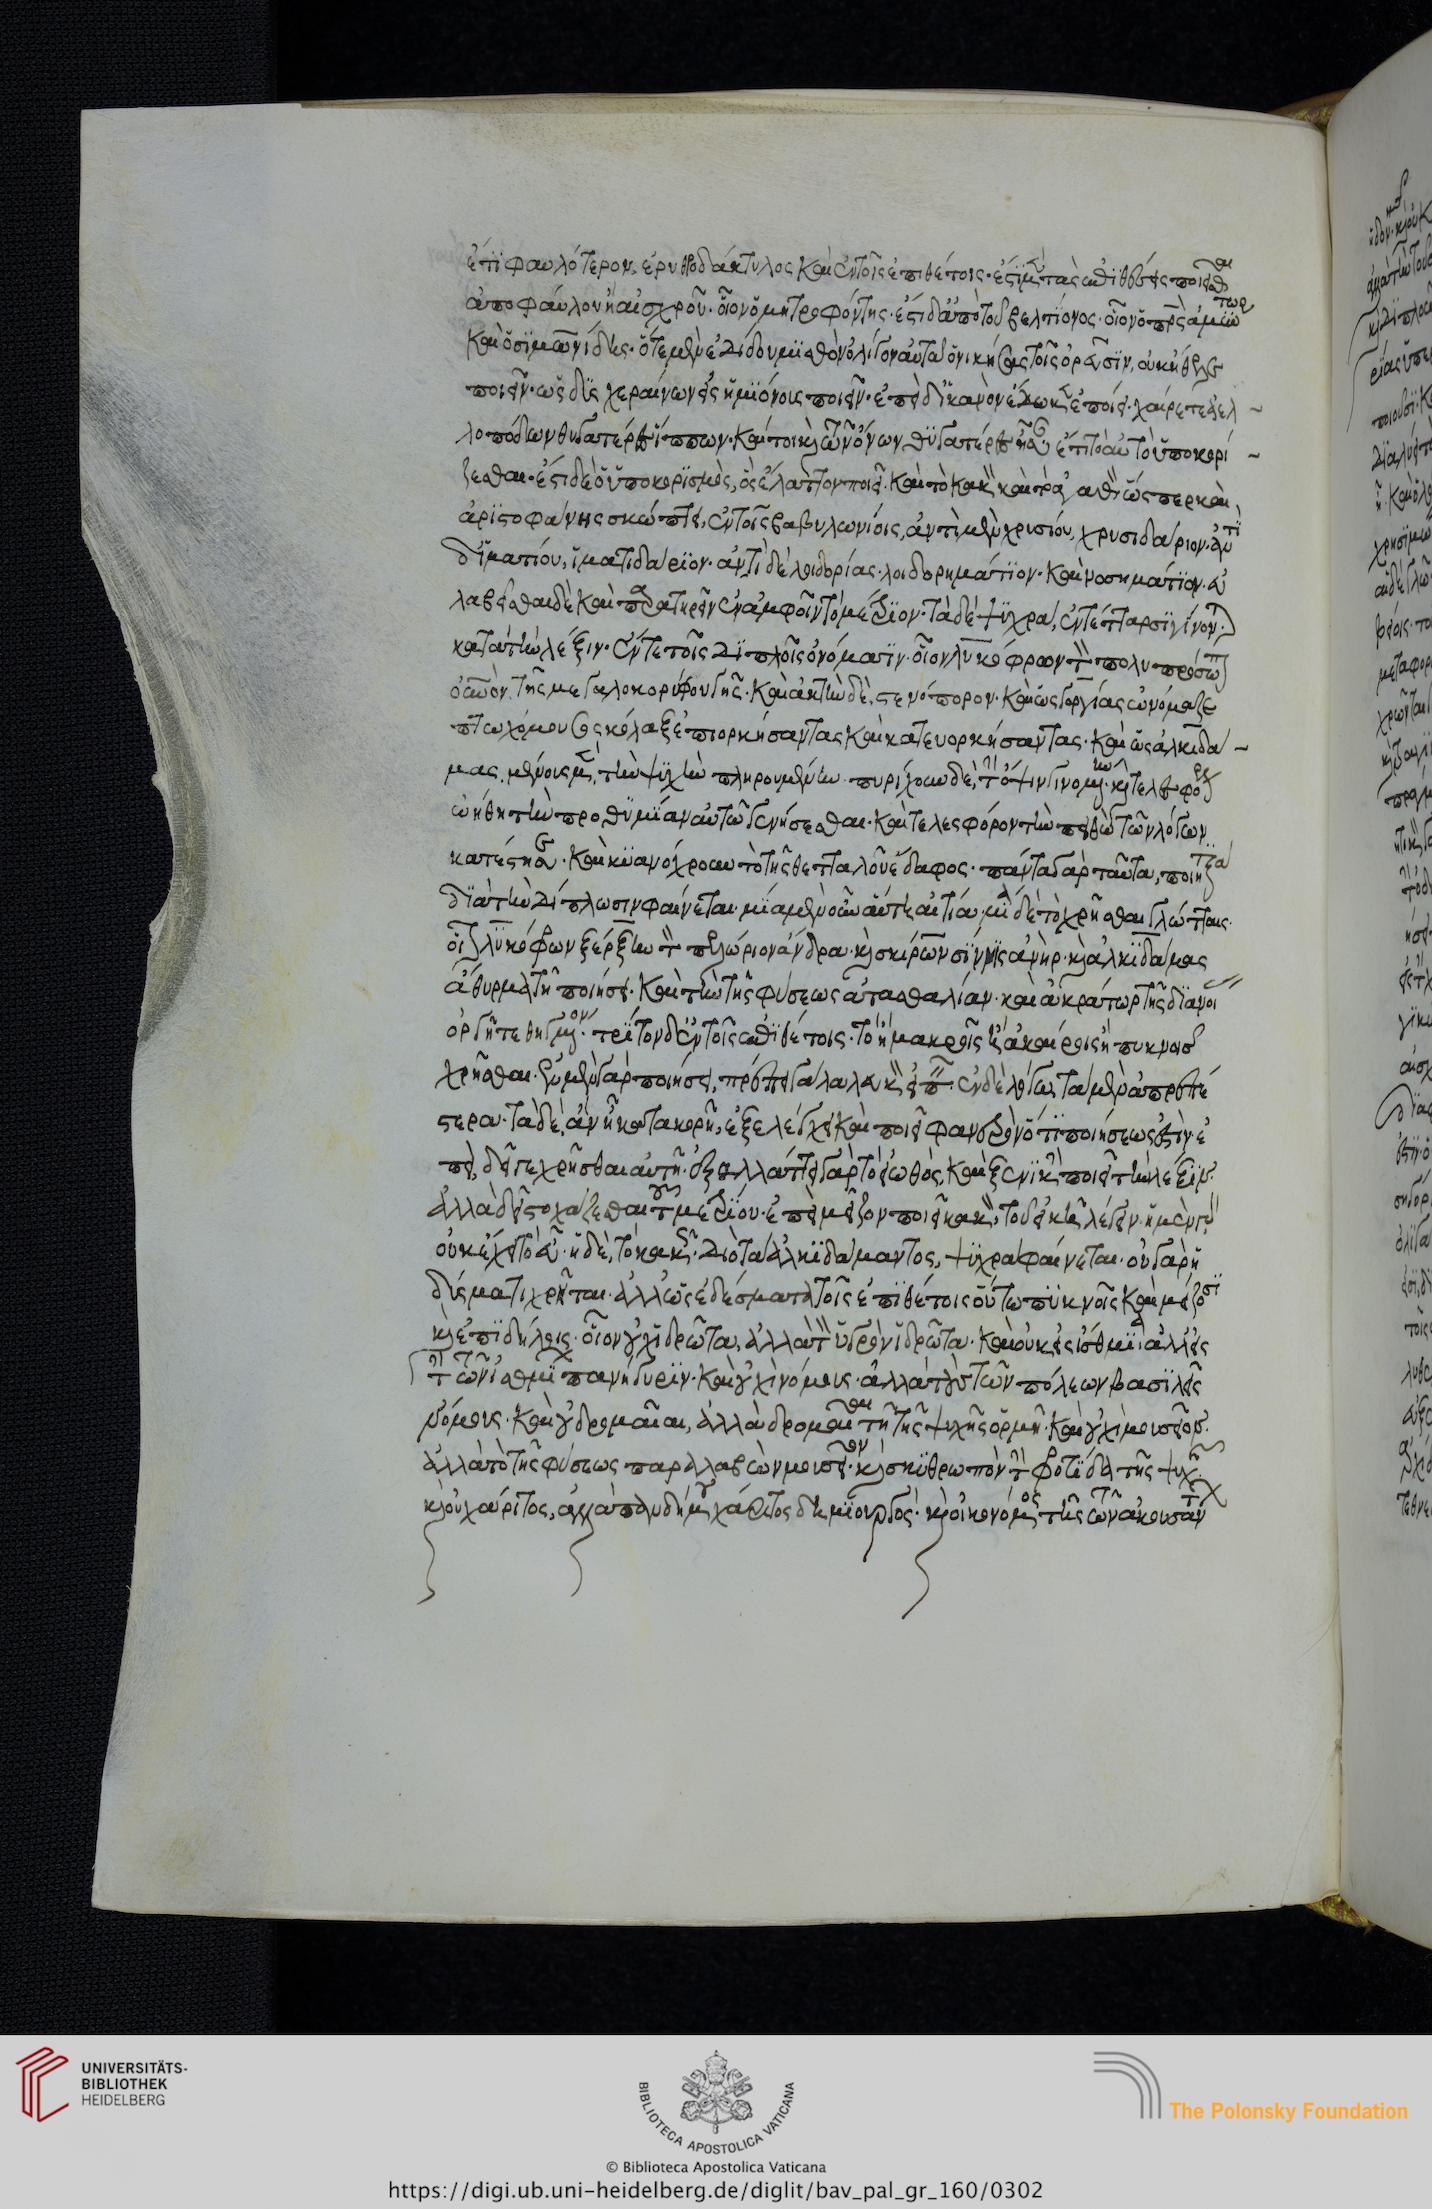 ἐπῒ φαυλότερον, ἐρυθροδάκτυλος καὶ ἐν τοῖς ἐπιθέτοις· ἔστι μὲν τὰς ἐπιθέσεις ποιεῖσθαι
ἀπὸ φαύλου ἢ αἰσχροῦ· οἷον ὁ μητροφόντης· ἔστι δ' ἀπὸ τοῦ βελτίονος· οἷον ὁ πατρὸς ἀμύντωρ
καὶ ὁ σιμωνίδης· ὅτε μὲν ἐδίδου μισθὸν ὀλίγον αὐτῶ ὁ νικήσας τοῖς ὀρεῦσιν, οὐκ ἤθελε
ποιεῖν· ὡς δυσχεραίνων εἰς ἡμιόνους ποιεῖν· ἐπεὶ δ' ἱκανὸν ἔδωκεν ἐποίει· χαίρετε ἀελ-
λοπόδων θυγατέρες ἵππων· καίτοι καὶ τῶν ὄνων θυγατέρες ἦσαν, ἔτι τὸ αὐτὸ ὑποκορί-
ζεσθαι· ἔστι δὲ ὁ ὑποκορισμὸς, ὃς ἔλαττον ποιεῖ· καὶ τὸ κακὸν καὶ τὸ ἀγαθὸν ὥσπερ καὶ
ἀριστοφάνης σκώπτει, ἐν τοῖς βαβυλωνίοις, ἀντὶ μὲν χρυσίου, χρυσιδάριον· ἀντὶ
δ' ἱματίου, ἱματιδάριον· ἀντὶ δὲ λοιδορίας· λοιδορημάτιον· καὶ νοσημάτιον· εὐ
λαβεῖσθαι δὲ καὶ παρατηρεῖν ἐν ἀμφοῖν τὸ μέτριον· τὰ δὲ ψυχρὰ, ἐν τέτταρσι γίνονται
κατὰ τὴν λέξιν· ἔν τε τοῖς διπλοῖς ὀνόμασιν· οἷον λυκόφρων τὸν πολυπρόσωπον
οὐρανὸν τῆς μεγαλοκορύφου γῆς· καὶ ἀκτὴν δὲ, στενόπορον· καὶ ὡς γοργίας ὠνόμαζε
πτωχόμουσος κόλαξ ἐπιορκήσαντας καὶ κατευορκήσαντας· καὶ ὡς ἀλκιδα-
μας· μένους μὲν τὴν ψυχὴν πληρουμένην πυρίχρουν δὲ τὴν ὄψιν γινομένην· καὶ τελεσφόρον
ὠήθη τὴν προθυμίαν αὐτῶν γενήσεσθαι· καὶ τελεσφόρον τὴν πειθὼ τῶν λόγων
κατέστησεν· καὶ κυανόχρουν τὸ τῆς θεττάλου ἔδαφος· πάντα γὰρ ταῦτα, ποιητικὰ
διὰ τὴν δίπλωσιν φαίνεται· μία μὲν οὖν αὕτη αἰτία, μία δὲ τὸ χρῆσθαι γλώτταις·
οἷον λυκόφρων ξέρξην τὸν πελώριον ἄνδρα· καὶ σκίρων σίννις ἀνὴρ· καὶ ἀλκιδάμας
ἄθυρμα τῇ ποιήσει· καὶ τὴν τῆς φύσεως ἀτασθαλίαν· καὶ ἀκράτωρ τῆς διανοίας
ὀργῇ τεθηγμένον· τρίτον δ' ἐν τοῖς ἐπιθέτοις· τὸ ἢ μακροῖς ἢ ἀκαίροις ἢ πυκνοῖς
χρῆσθαι· ἐν μὲν γὰρ ποιήσει, πρέπει γάλα λευκὸν εἰπεῖν· ἐν δὲ λόγω τὰ μὲν ἀπρεπέ
στερα· τὰ δὲ, ἂν ᾖ κατακορῆ, ἐξελέγχει καὶ ποιεῖ φανερὸν ὅτι ποιήσεως ἐστὶν· ἐ
πεὶ, δεῖ γε χρῆσθαι αὐτῇ· ἐξαλλάττει γὰρ τὸ εἰωθὸς, καὶ ξενικὴν ποιεῖ τὴν λέξιν·
ἀλλὰ δεῖ στοχάζεσθαι τοῦ μετρίου· ἐπεὶ μεῖζον ποιεῖ κακὸν, τοῦ εἰκῆ λέγειν· ἡ μὲν γὰρ
οὐκ ἔχει τὸ εὖ· ἡ δὲ, τὸ κακῶς· διὸ τὰ ἀλκιδάμαντος, ψυχρὰ φαίνεται· οὐ γὰρ ἡ
δύσματι χρῆται· ἀλλ' ὡς ἐδέσματι τοῖς ἐπιθέτοις οὕτω πυκνοῖς καὶ μείζοσι
καὶ ἐπιδήλοις· οἷον οὐχ ἱδρῶτα, ἀλλὰ τὸν ὑγρὸν ἱδρῶτα· καὶ οὐκ εἰς ἴσθμια ἀλλ' εἰς
τὴν τῶν ἰσθμίων πανήγυριν· καὶ οὐχὶ νόμους· ἀλλὰ τοὺς τῶν πόλεων βασιλεῖς
νόμους· καὶ οὐ δρομαίαι, ἀλλὰ δρομαία τῇ τῆς ψυχῆς ὁρμῇ· καὶ οὐχὶ μουσεῖον·
ἀλλὰ τὸ τῆς φύσεως παραλαβὼν μουσεῖον· καὶ σκυθρωπὸν τὴν φροντίδα τῆς ψυχῆς·
καὶ οὐ χάριτος, ἀλλὰ πανδήμου χάριτος δημιουργός· καὶ οἰκονόμος τῆς τῶν ἀκουόντων
UNIVERSITÄTS-
BIBLIOTHEK
HEIDELBERG
BIBLIOTECA APOSTOLICA VATICANA
The Polonsky Foundation
© Biblioteca Apostolica Vaticana
https://digi.ub.uni-heidelberg.de/diglit/bav_pal_gr_160/0302